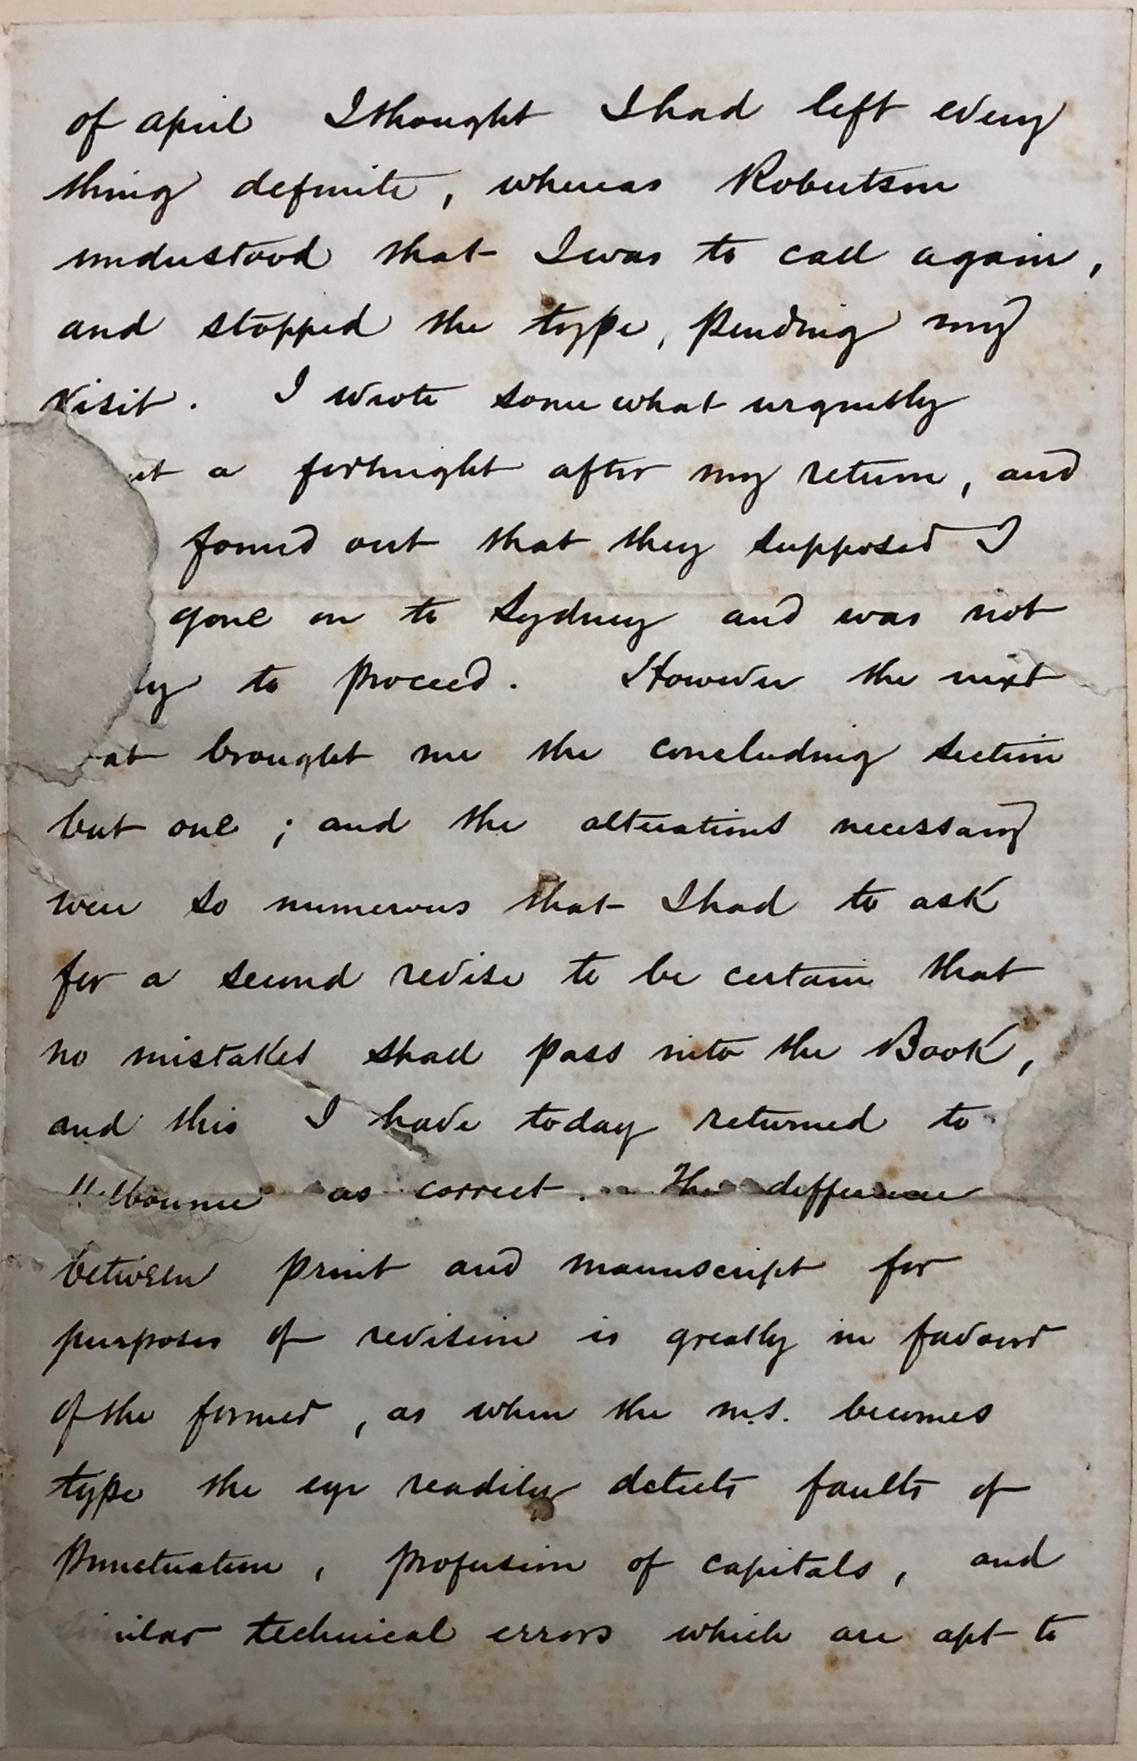 of april I thought I had left every
thing definite, whereas Robertson
understood that I was to call again,
and stopped the type, pending my
visit. I wrote some what urgently
a fortnight after my return, and
found out that they supposed I
gone on to Sydney and was not
to proceed. However the next
brought me the concluding section
but one; and the alterations necessary
were so numerous that I had to ask
for a second revise to be certain that
no mistakes shall pass into the Book,
and this I have today returned to
as correct. The difference
between print and manuscript for
purposes of revision is greatly in favour
of the former, as when the m.s. becomes
type the eye readily detects faults of
punctuation, profusion of capitals, and
technical errors which are apt to